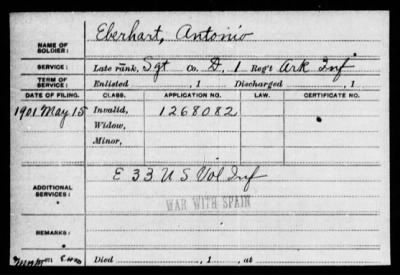 Eberhart, Antonio
NAME OF SOLDIER:
SERVICE: Late rank, Sgt Co. D, 1 Reg't Ark Inf
TERM OF SERVICE: Enlisted , 1 Discharged , 1
DATE OF FILING. CLASS. APPLICATION NO. LAW. CERTIFICATE NO.
1901 May 15 Invalid, 1268082
Widow,
Minor,
E 33 U S Vol Inf
ADDITIONAL SERVICES:
WAR WITH SPAIN
REMARKS:
Died , 1 , at